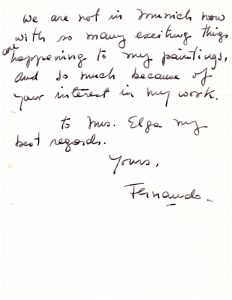 We are not in Munich now
with so many exciting things
are happening to my paintings,
and so much because of
your interest in my work.
to Mrs. Elga my
best regards.
Yours,
Fernando.